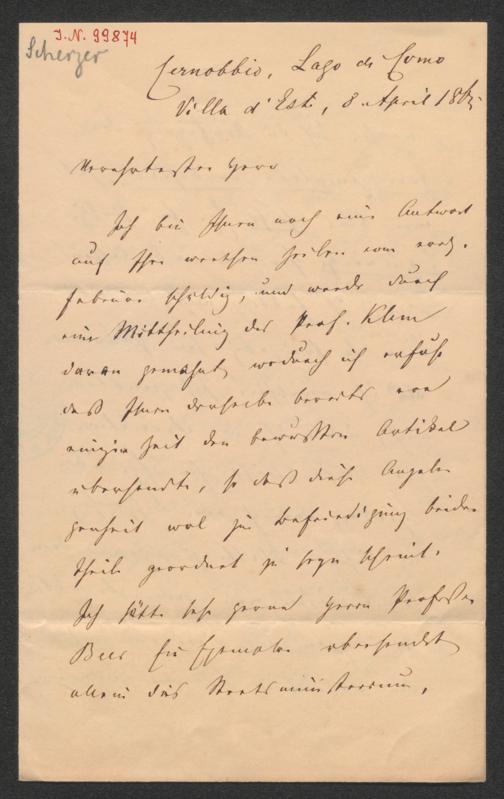 J. N. 99874
Scherzer
Cernobbio, Lago di Como
Villa d'Este, 8 April 186
Verehrtester Herr
Ich bin Ihnen noch eine Antwort
auf Ihre werthen Zeilen vom
Februar schuldig, und werde durch
eine Mittheilung des Prof. Klun
daran gemahnt, wodurch ich erfuhr
daß Ihnen derselbe bereits vor
einiger Zeit den bewußten Artikel
übersendete, so daß diese Angele-
genheit wol zur Befriedigung beider
Theile geordnet zu seyn scheint.
Ich hätte sehr gerne Herrn Professor
Beer ein Exemplar übersendet
allein das Staatsministerium,